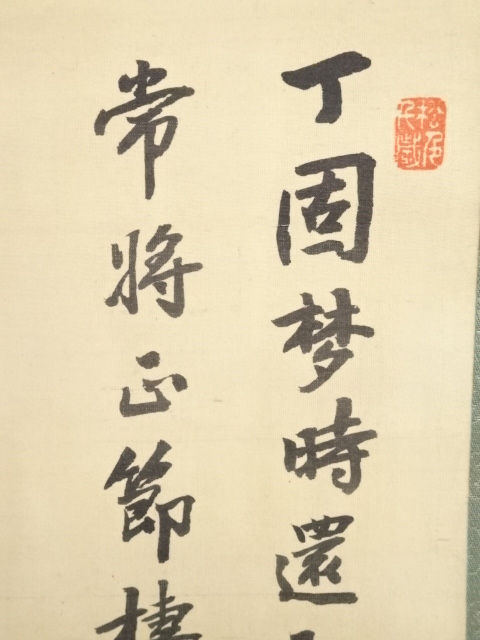 丁固梦時還
常將正節棲